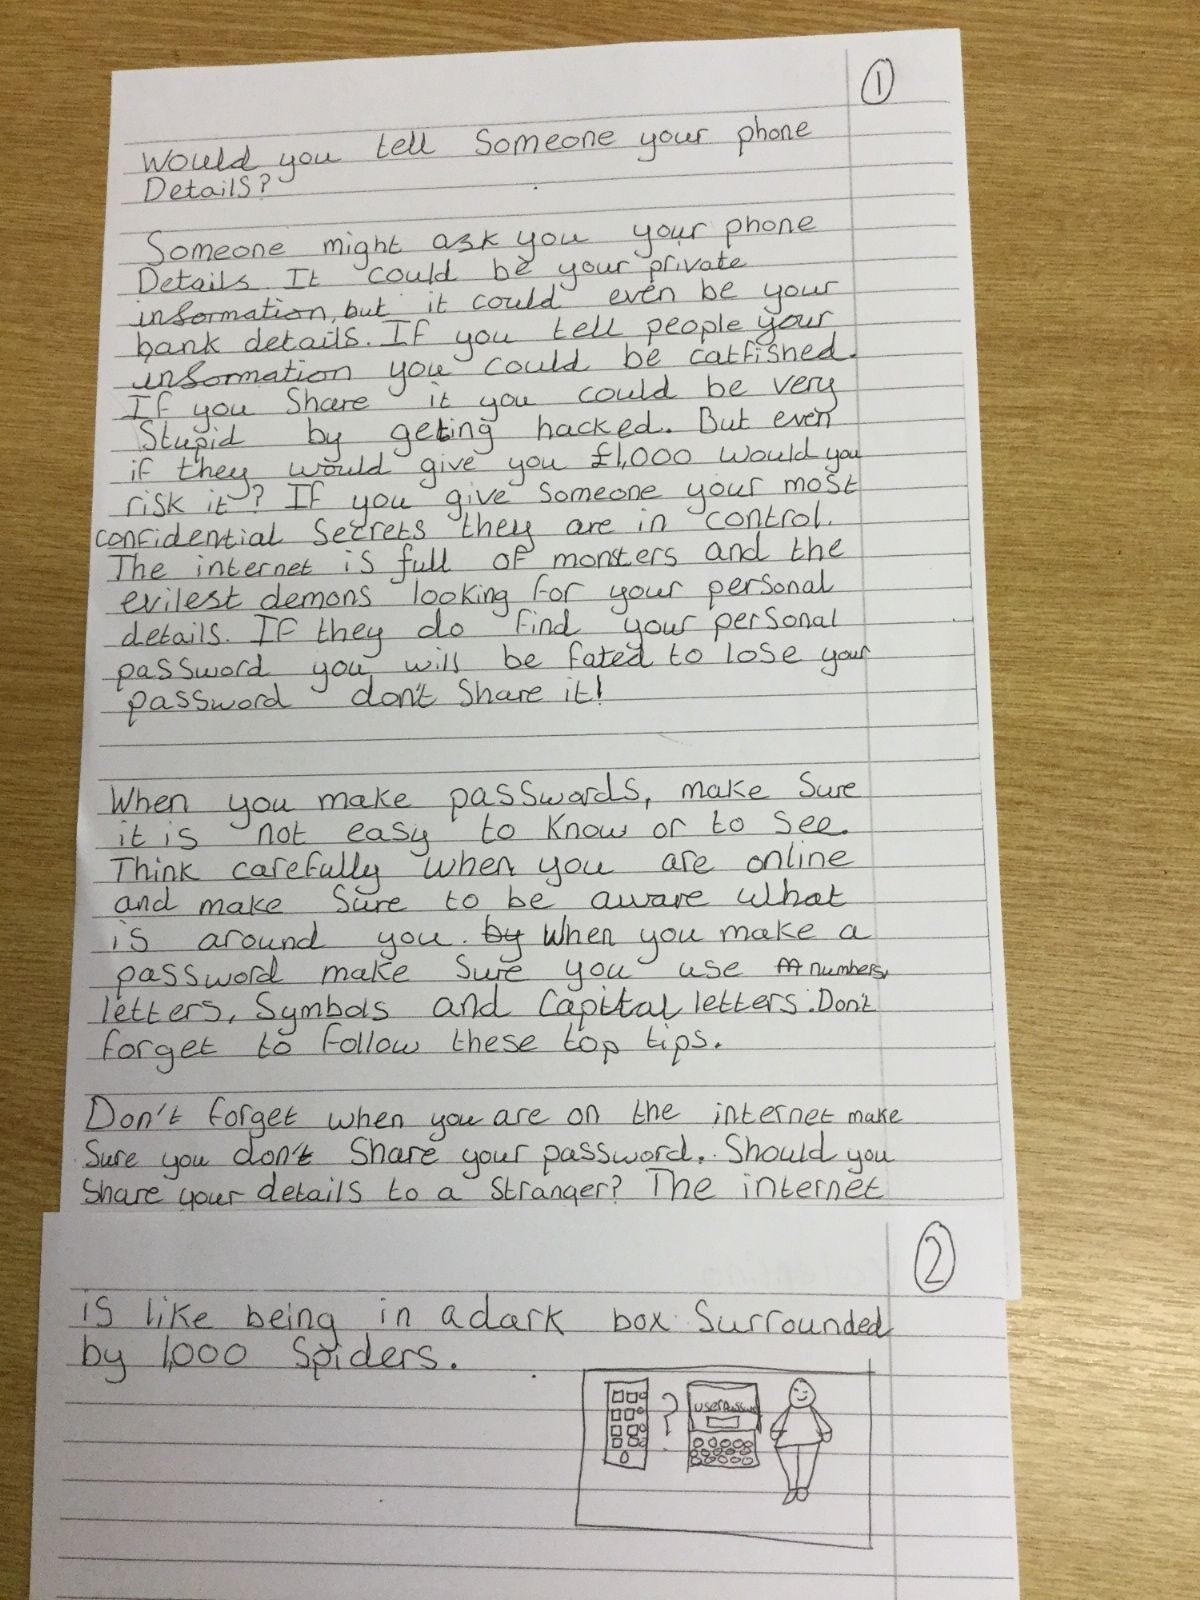 1
Would you tell Someone your phone
Details?
Someone might ask you your phone
Details. It could be your private
information, but it could even be your
bank details. If you tell people your
information you could be catfished.
If you Share it you could be very
Stupid by geting hacked. But even
if they would give you £1,000 would you
risk it? If you give Someone your most
confidential Secrets they are in control.
The internet is full of monsters and the
evilest demons looking for your personal
details. If they do find your personal
password you will be fated to lose your
password don't Share it!
When you make passwords, make Sure
it is not easy to know or to see.
Think carefully when you are online
and make Sure to be aware what
is around you. by When you make a
password make Sure you use numbers,
letters, Symbols and Capital letters. Don't
forget to follow these top tips.
Don't forget when you are on the internet make
Sure you don't Share your password. Should you
Share your details to a Stranger? The internet
2
is like being in a dark box Surrounded
by 1,000 Spiders.
?